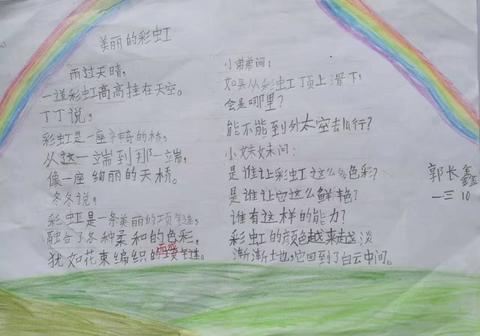 美丽的彩虹
雨过天晴，
一道彩虹高高挂在天空。
丁丁说，
彩虹是一座弯弯的桥，
从这一端到那一端，
像一座绚丽的天桥。
冬冬说，
彩虹是一条美丽的项链，
融合了各种柔和的色彩，
犹如花束编织的项链。
小弟弟问：
如果从彩虹丁页上滑下，
会是哪里？
能不能到外太空去旅行？
小妹妹问：
是谁让彩虹这么多色彩？
是谁让它这么鲜艳？
谁有这样的能力？
彩虹的颜色越来越淡
渐渐土也，它回到了白云中间。
郭长鑫
一三 10